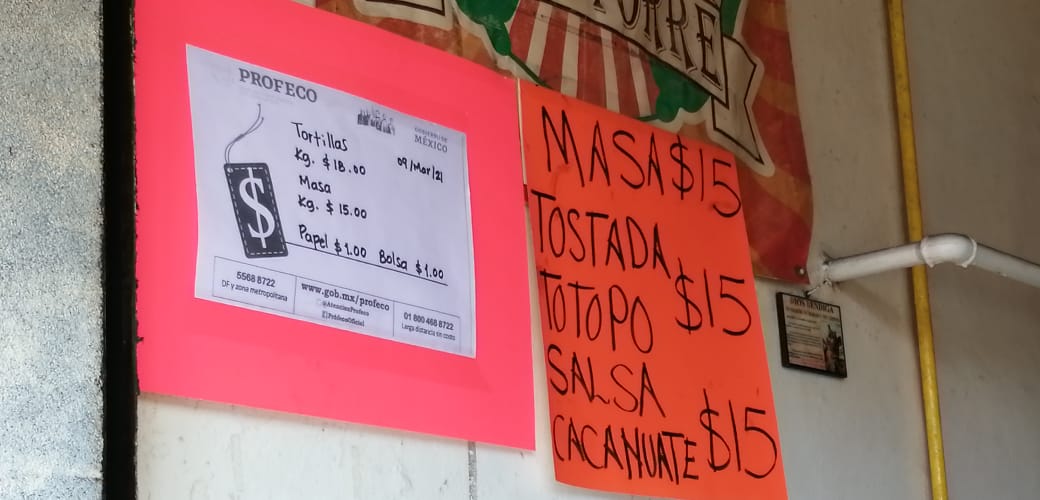 PROFECO
GOBIERNO DE
MÉXICO
Tortillas
Kg. $18.00
09/Mar/21
Masa
Kg. $ 15.00
Papel $1.00 Bolsa $1.00
5568 8722
DF y zona metropolitana
www.gob.mx/profeco
@AtencionProfeco
ProfecoOficial
01 800 468 8722
Larga distancia sin costo
MASA $15
TOSTADA
TOTOPO $15
SALSA
CACAHUATE $15
DIOS BENDIGA